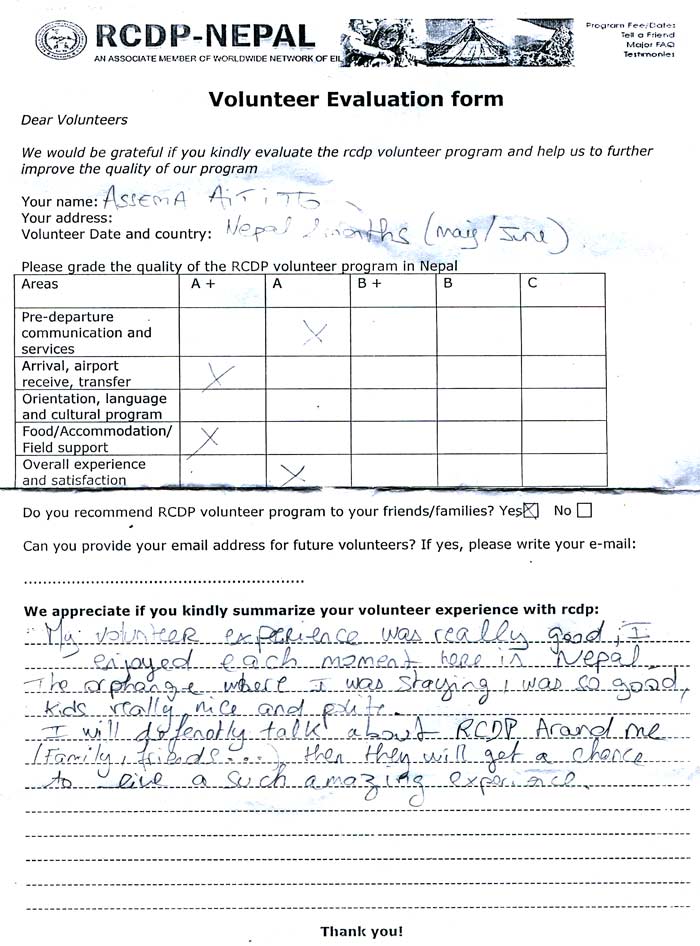 RCDP-NEPAL
AN ASSOCIATE MEMBER OF WORLDWIDE NETWORK OF EIL
Program Fee/Dates
Tell a Friend
Major FAQ
Testimonies
Volunteer Evaluation form
Dear Volunteers
We would be grateful if you kindly evaluate the rcdp volunteer program and help us to further
improve the quality of our program
Your name: ASSEMA
Your address:
Volunteer Date and country: Nepal 2 months (maig/June)
Please grade the quality of the RCDP volunteer program in Nepal
Areas A + A B + B C
Pre-departure
communication and
services X
Arrival, airport
receive, transfer X
Orientation, language
and cultural program
Food/Accommodation/
Field support X
Overall experience
and satisfaction X
Do you recommend RCDP volunteer program to your friends/families? Yes X No
Can you provide your email address for future volunteers? If yes, please write your e-mail:
We appreciate if you kindly summarize your volunteer experience with rcdp:
My volunteer experience was really good, I
enjoyed each moment here in Nepal
The orphange where I was staying, was so good,
kids really nice and polite.
I will defenetly talk about RCDP Arand me
(Family, friends....), then they will get a chance
to live a such amazing experience.
Thank you!